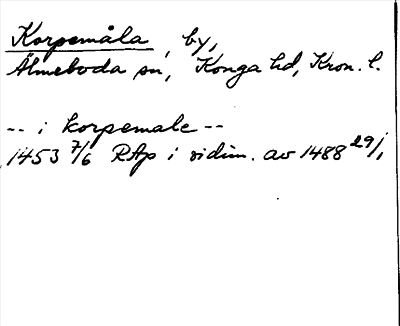 Korpemåla, by,
Älmeboda sn, Konga hd, Kron. l.
-- i korpemale --
1453 7/6 RAp i vidim. av 1488 29/1